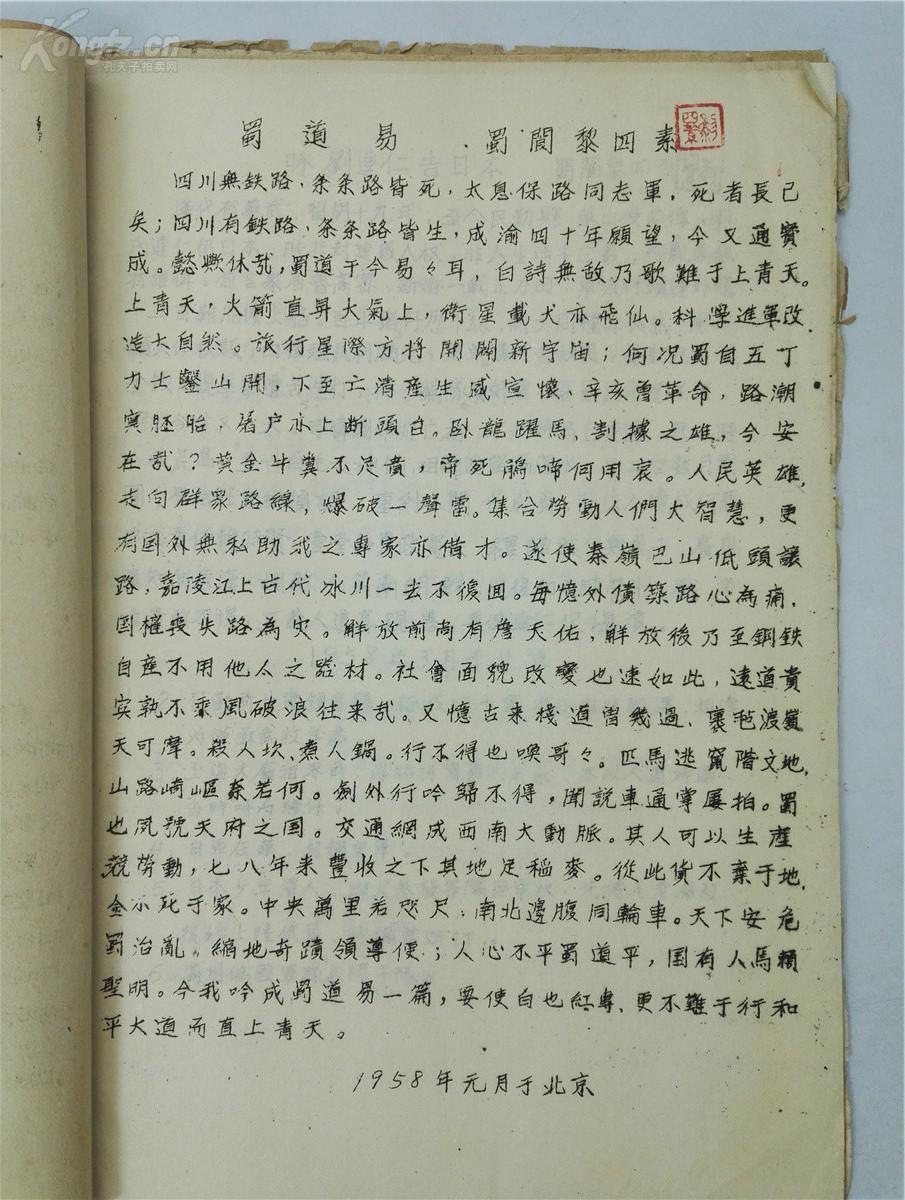 Kongfz.cn
孔夫子拍卖网
蜀道易 蜀閬黎四素
四川無鉄路，条条路皆死，太息保路同志軍，死者長已
矣；四川有鉄路，条条路皆生，成渝四十年願望，今又通寳
成。懿歟休哉，蜀道于今易々耳，白詩無敵乃歌難于上青天。
上青天，火箭直昇大氣上，衛星載犬亦飛仙。科學進軍改
造大自然。旅行星際方將開闢新宇宙；何况蜀自五丁
力士鑿山開，下至亡清產生盛宣懷、辛亥曾革命，路潮
寔胚胎，屠户亦上断頭台。卧龍躍馬、割據之雄，今安
在哉？黄金牛糞不足貴，帝死鵑啼何用哀。人民英雄，
走向群衆路綫，爆破一聲雷。集合勞動人們大智慧，更
有国外無私助我之專家亦借才。遂使秦嶺巴山低頭讓
路，嘉陵江上古代冰川一去不復回。每憶外債築路心為痛，
国權喪失路為灾。解放前尚有詹天佑，解放後乃至鋼鉄
自産不用他人之器材。社會面貌改變也速如此，遠道貴
实孰不乘風破浪往来哉。又憶古来棧道曾幾過、裹毡渡嶺
天可摩。殺人坎、煮人鍋。行不得也喚哥々。匹馬逃竄階文地，
山路崎嶇奈若何。劍外行吟歸不得，聞説車通掌屢拍。蜀
也夙號天府之国。交通網成西南大動脈。其人可以生產
競勞動，七八年来豐收之下其地足稲麥。從此貨不棄于地，
金不死于家。中央萬里若咫尺，南北邊腹同輪車。天下安危
蜀治亂，縮地奇蹟領導使；人心不平蜀道平，国有人焉賴
聖明。今我吟成蜀道易一篇，要使白也紅專、更不難于行和
平大道而直上青天。
1958年元月于北京